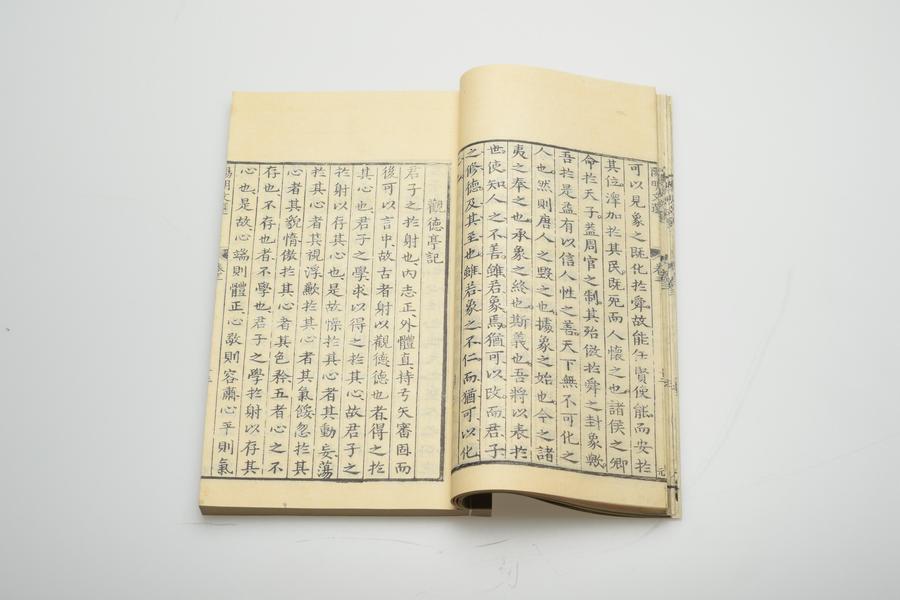 可以見象之既化於舜故能任賢使能而安於
其位澤加於其民既死而人懷之也諸侯之卿
命於天子蓋周官之制其殆倣於舜之封象歟
吾於是益有以信人性之善天下無不可化之
人也然則唐人之毀之也據象之始也今之諸
夷之奉之也承象之終也斯義也吾將以表於
世使知人之不善雖若象焉猶可以改而君子
之修德及其至也雖若象之不仁而猶可以化
觀德亭記
君子之於射也內志正外體直持弓矢審固而
後可以言中故古者射以觀德德也者得之於
其心也君子之學求以得之於其心故君子之
於射以存其心也是故慄於其心者其動妄蕩
於其心者其視浮歉於其心者其氣餒忽於其
心者其貌惰傲於其心者其色矜五者心之不
存也不存也者不學也君子之學於射以存其
心也是故心端則體正心敬則容肅心平則氣
陽明文選